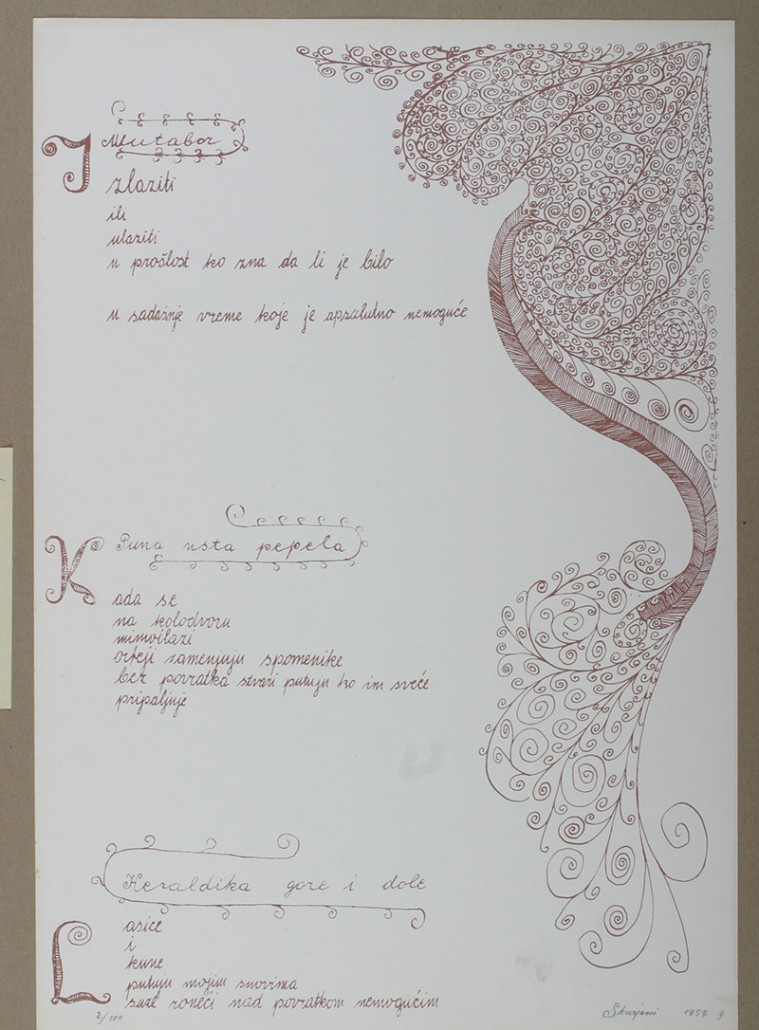 Mutabor
Izlaziti
ili
ulaziti
u prošlost ko zna da li je bilo
u sadašnje vreme koje je apsolutno nemoguće
Puna usta pepela
Kada se
na kolodvoru
mimoilazi
orfeji zamenjuju spomenike
bez povratka stvari putuju ko im sveće
pripaljuje
Heraldika gore i dole
Lasice
i
kune
putuju mojim snovima
suze roneći nad povratkom nemogućim
2/100 1959.